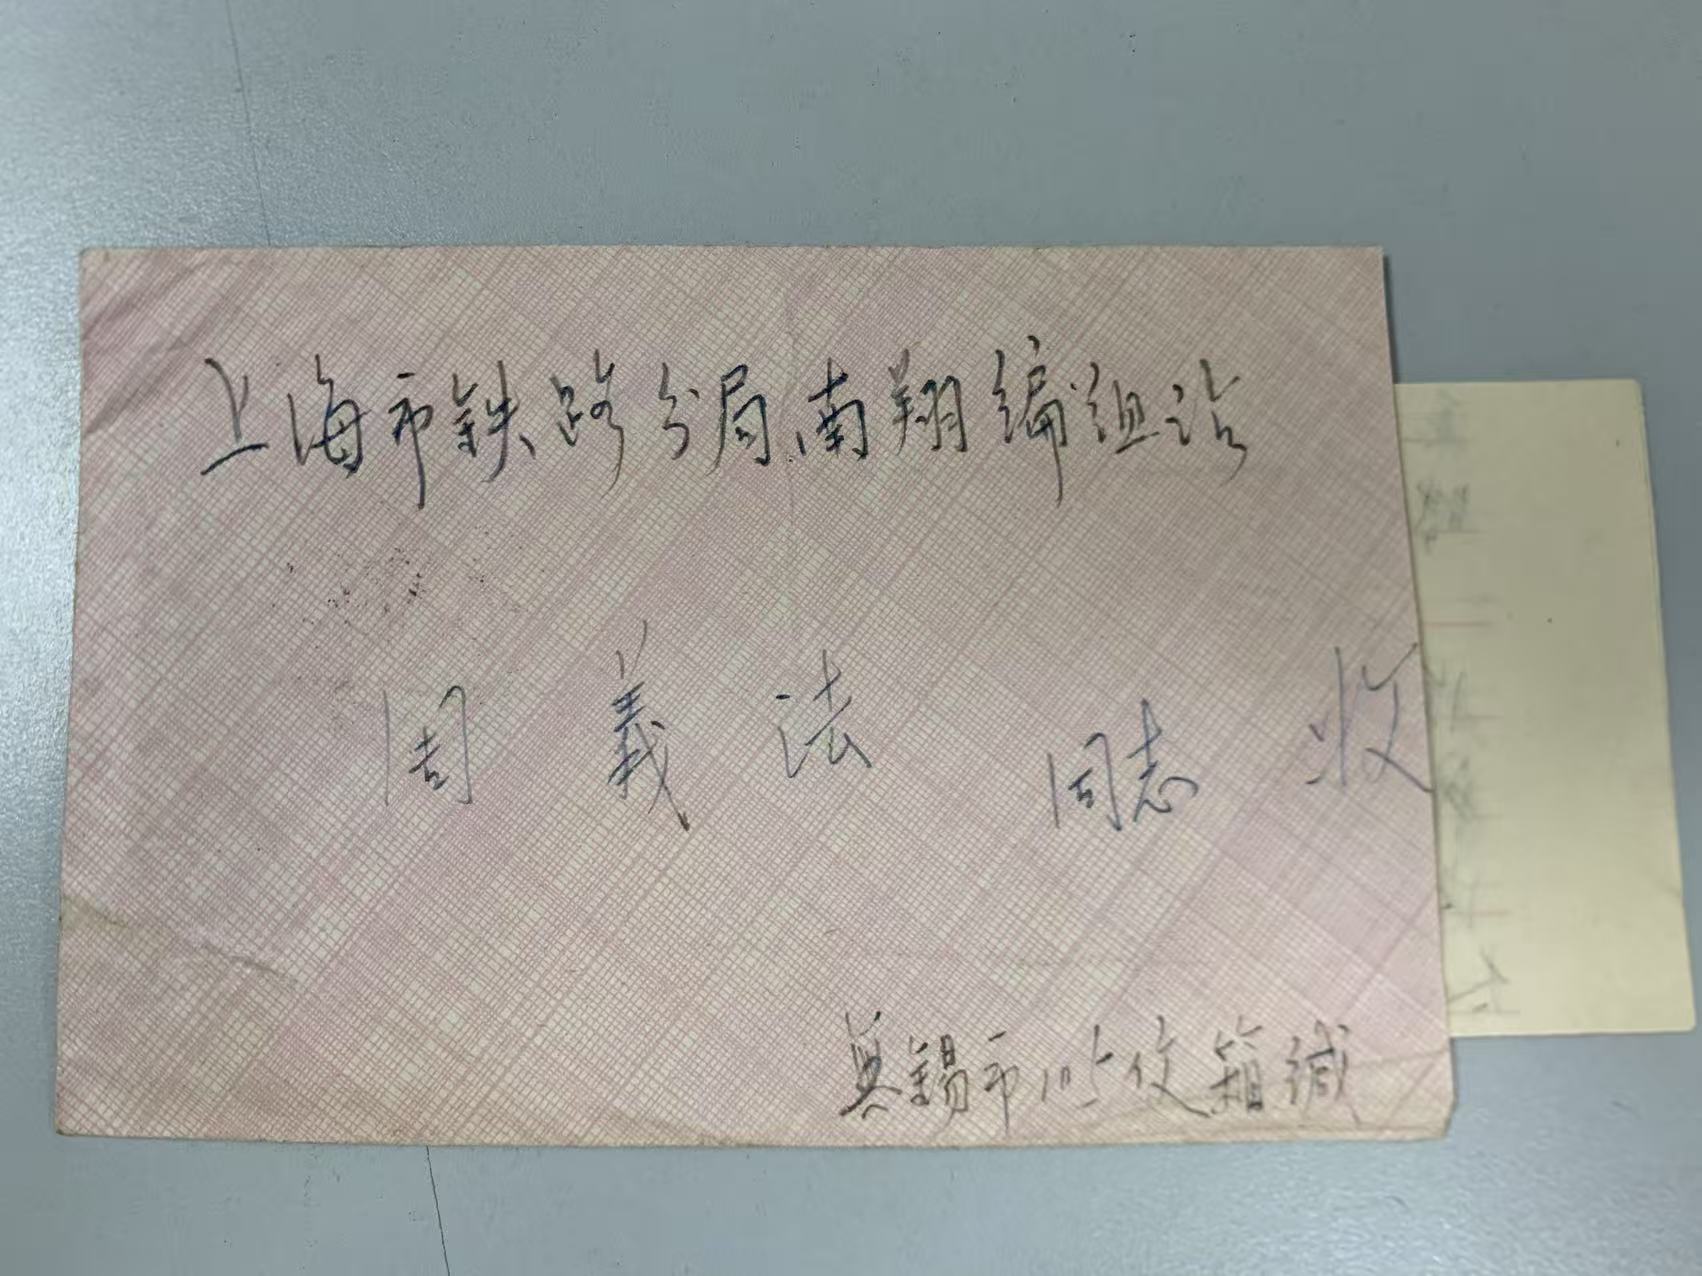 上海市铁路分局南翔编组站
周義法 同志 收
無锡市105仅箱缄